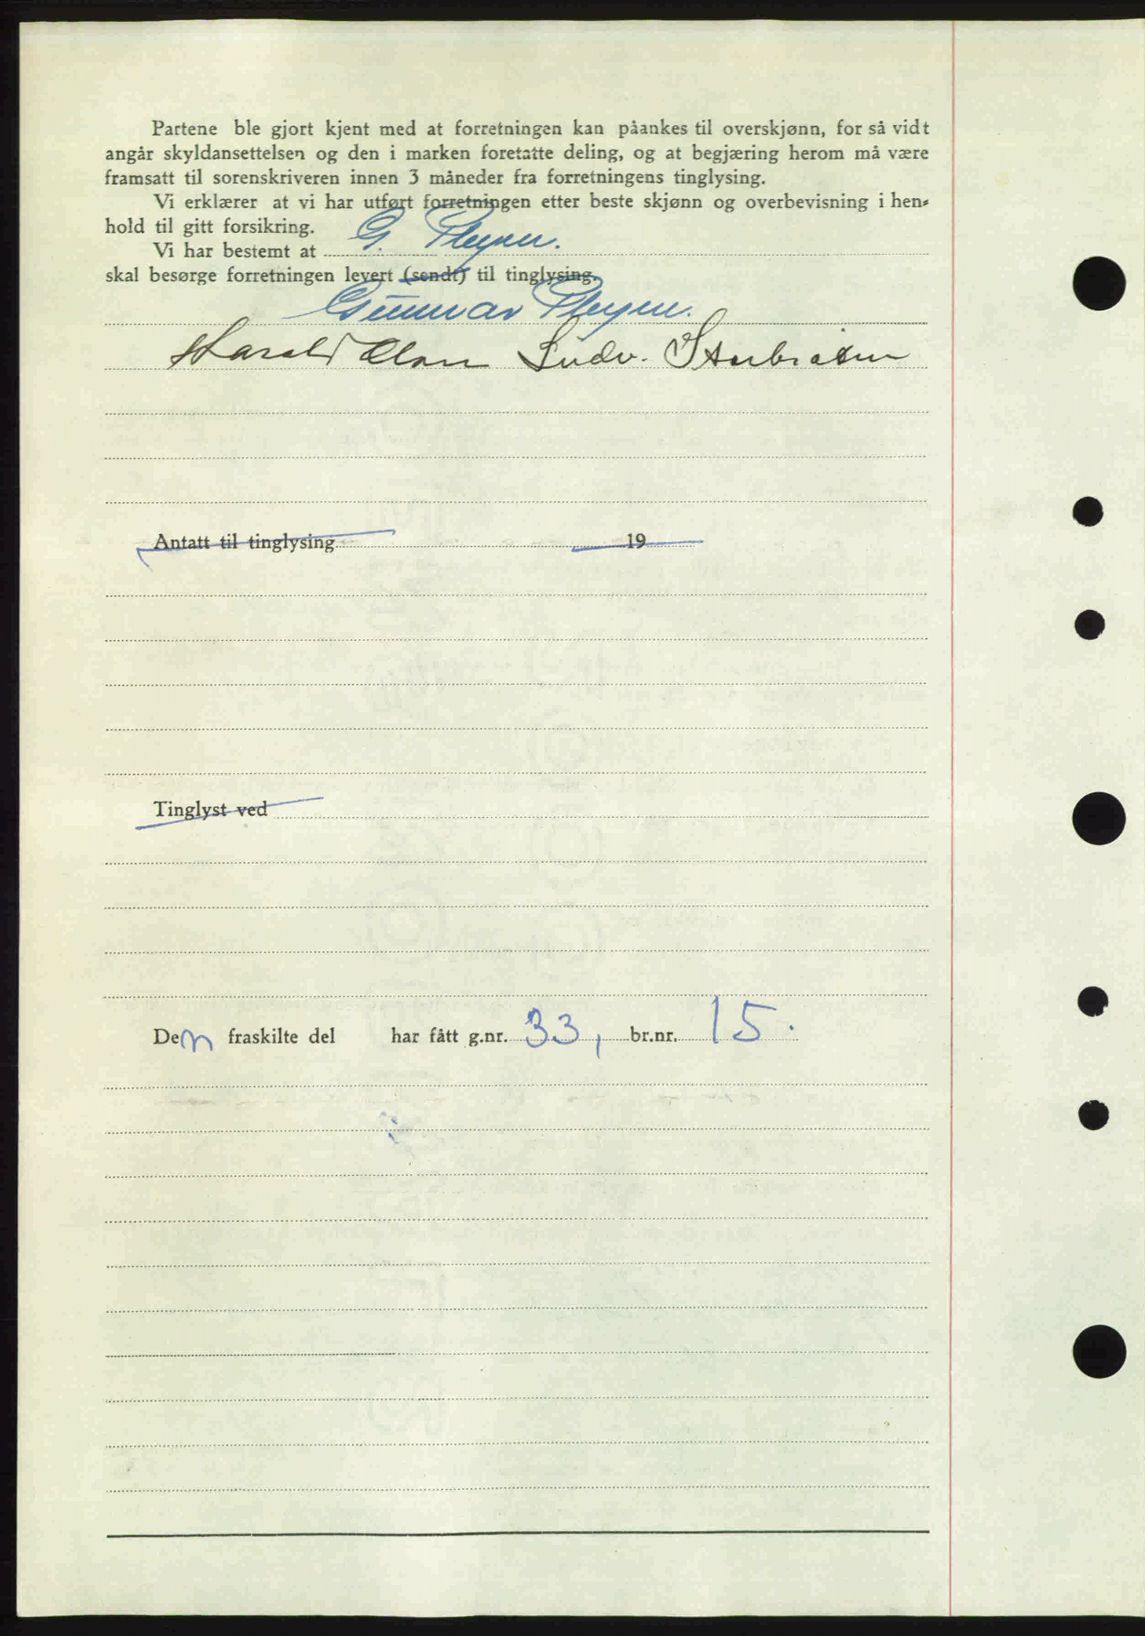 Partene ble gjort kjent med at forretningen kan påankes til overskjønn, for så vidt
angår skyldansettelsen og den i marken foretatte deling, og at begjæring herom må være
framsatt til sorenskriveren innen 3 måneder fra forretningens tinglysing.
Vi erklærer at vi har utført forretningen etter beste skjønn og overbevisning i hen-
hold til gitt forsikring.
Vi har bestemt at G.
skal besørge forretningen levert (sendt) til tinglysing.
Gunnar
Harald Olsen Ludv.
Antatt til tinglysing 19
Tinglyst ved
Den fraskilte del har fått g.nr. 33, br.nr. 15.